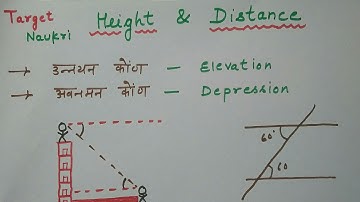 Target Height & Distance
Naukri
→ उन्नयन कोंण – Elevation
→ अवनमन कोंण – Depression
60°
60